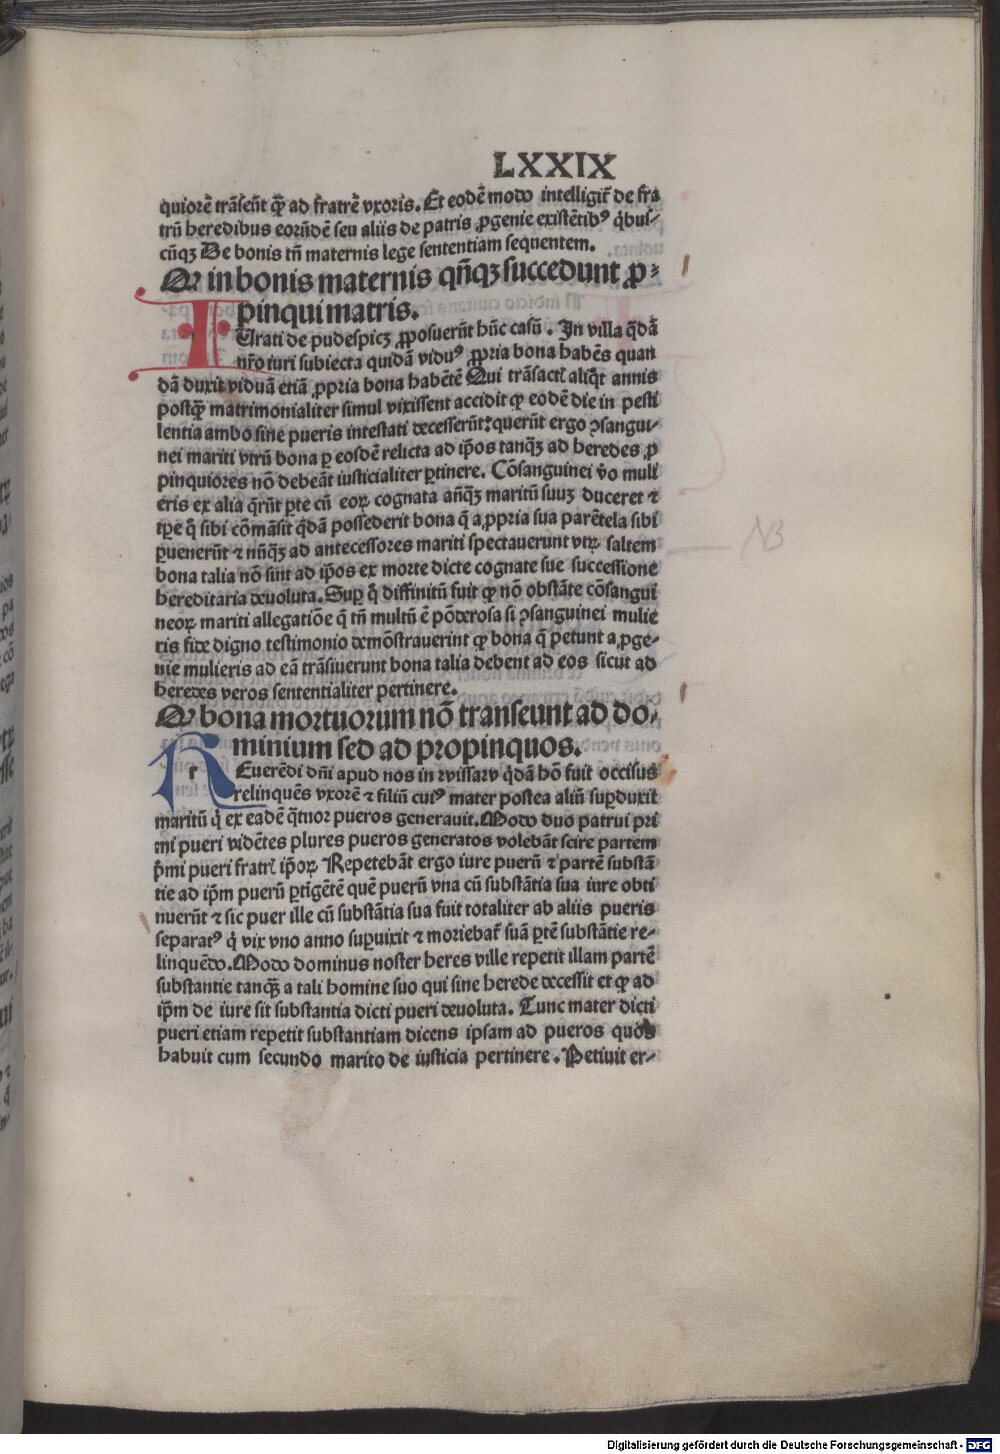 LXXIX
quiorē trāseūt q̄ꝫ ad fratrē vxoris. Et eodē modo intelligit̄ de fra
trū heredibus eorūdē seu aliis de patris ꝓgenie existētibꝰ q̇bus-
cūqꝫ De bonis tn̄ maternis lege sententiam sequentem.
Qꝛ in bonis maternis qn̄qꝫ succedunt ꝓ-
pinqui matris.
IUrati de pudespicz ꝓposuerūt hūc casū. In villa q̄dā
nr̄o iuri subiecta quidā viduꝰ ꝓpria bona habēs quan
dā duxit viduā etiā ꝓpria bona habētē Qui trāsactꝭ aliq̇t annis
postq̄ꝫ matrimonialiter simul vixissent accidit ꝙ eodē die in pesti
lentia ambo sine pueris intestati decesserūt: querūt ergo ꝯsangui-
nei mariti vtrū bona ꝑ eosdē relicta ad ip̄os tanqꝫ ad heredes ꝓ
pinquiores nō debeāt iusticialiter ꝑtinere. Cōsanguinei v̄o muli
eris ex alia q̄rūt ꝑte cū eoꝝ cognata an̄qꝫ maritū suuꝫ duceret ⁊
tꝑe q̇ sibi cōmāsit q̄dā possederit bona q̄ a ꝓpria sua parētela sibi
ꝑuenerūt ⁊ nūqꝫ ad antecessores mariti spectauerunt vtꝝ saltem
bona talia nō sint ad ip̄os ex morte dicte cognate sue successione
hereditaria deuoluta. Suꝑ q̇ diffinitū fuit ꝙ nō obstāte cōsangui
neoꝝ mariti allegatiōe q̄ tn̄ multū ē pōderosa si ꝯsanguinei mulie
ris fide digno testimonio demōstrauerint ꝙ bona q̄ petunt a ꝓge-
nie mulieris ad eā trāsiuerunt bona talia debent ad eos sicut ad
heredes veros sententialiter pertinere.
Qꝛ bona mortuorum nō transeunt ad do-
minium sed ad propinquos.
REuerēdi dn̄i apud nos in rvissarv q̄dā hō fuit occisus
relinquēs vxorē ⁊ filiū cuiꝰ mater postea aliū suꝑduxit
maritū q̇ ex eadē q̄tuor pueros generauit. Modo duo patrui pri
mi pueri vidētes plures pueros generatos volebāt scire partem
p̄mi pueri fratrꝭ ip̄oꝝ Repetebāt ergo iure puerū ⁊ partē substā
tie ad ip̄m puerū ꝑtīgētē quē puerū vna cū substātia sua iure obti
nuerūt ⁊ sic puer ille cū substātia sua fuit totaliter ab aliis pueris
separatꝰ q̇ vix vno anno suꝑuixit ⁊ moriebat̄ suā ꝑtē substātie re-
linquēdo. Modo dominus noster heres ville repetit illam partē
substantie tanq̄ꝫ a tali homine suo qui sine herede decessit et ꝙ ad
ip̄m de iure sit substantia dicti pueri deuoluta. Tunc mater dicti
pueri etiam repetit substantiam dicens ipsam ad pueros quos
habuit cum secundo marito de iusticia pertinere. Petiuit er-
NB
Digitalisierung gefördert durch die Deutsche Forschungsgemeinschaft - DFG